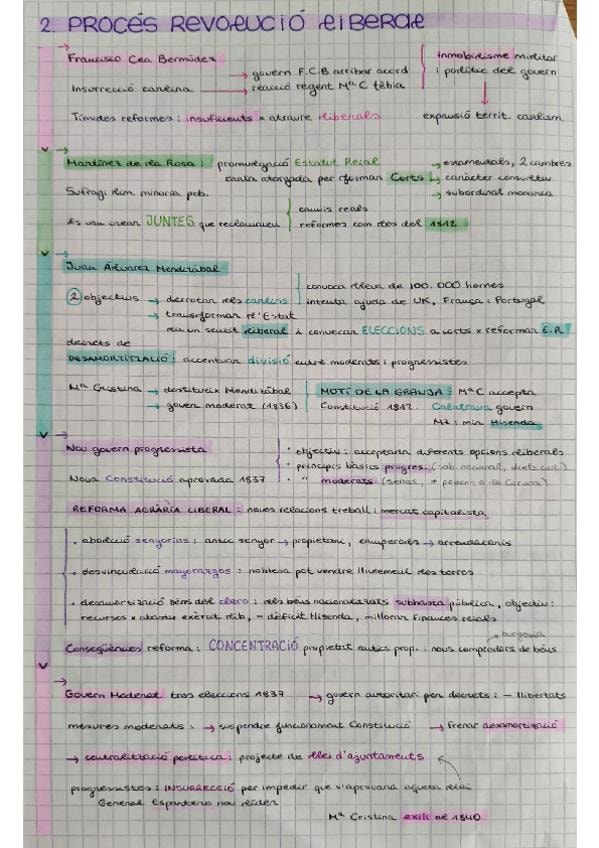 2. PROCÉS REVOLUCIÓ LIBERAL
Francisco Cea Bermúdez
inmobilisme militar
→ govern F.C.B arribar acord
i polític del govern
Insurrecció carlina → reacció regent Mª C tèbia
Tímides reformes : insuficients x atraure liberals
expansió territ. carlism.
Martínez de la Rosa : promulgació Estatut Reial → estamentals, 2 cambres
carta atorgada per formar Corts → caràcter consultiu
→ subordinat monarca
Sufragi llim. minoria pob.
canvis reals
Es van crear JUNTES que reclamaven
reformes com les del 1812
Juan Álvarez Mendizábal
convoca lleva de 100.000 homes
2 objectius → derrotar als carlins
intenta ajuda de UK, França i Portugal
→ transformar l'Estat
en un sentit liberal i convocar ELECCIONS a corts x reformar E.R
decrets de
DESAMORTITZACIÓ: accentuar divisió entre moderats i progressistes
Mª Cristina → destitueix Mendizábal
MOTÍ DE LA GRANJA : Mª C accepta
→ govern moderat (1836)
Constitució 1812. Calatrava govern
MZ : min Hisenda
Nou govern progressista
· objectiu : acceptara diferents opcions liberals
· principis bàsics progres. (sob. nacional, drets civils)
Nova Constitució aprovada 1837
· " moderats (senat, + poders a la Corona)
REFORMA AGRÀRIA LIBERAL : noves relacions treball i mercat capitalista
· abolició senyorius : antic senyor → propietari, camperols → arrendataris
· desvinculació mayorazgos : noblesa pot vendre lliurement les terres
· desamortizació béns del clero : els béns nacionalitzats subhasta pública, objectiu:
recursos x abastir exèrcit lib, - dèficit Hisenda, millorar finances reials
burgesia
Conseqüències reforma : CONCENTRACIÓ propietat antics prop. i nous compradors de béns
Govern Moderat tras eleccions 1837 → govern autoritari per decrets : - llibertats
mesures moderats : → suspendre funcionament Constitució → frenar desamortizació
→ centralització política : projecte de llei d'ajuntaments
progressistes : INSURRECCIÓ per impedir que s'aprovara aquesta llei
General Espartero nou líder
Mª Cristina exili al 1840